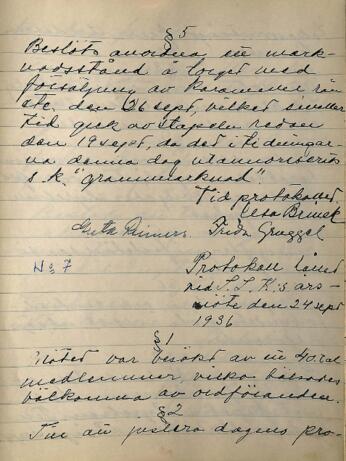 § 5
Beslöts anordna en mark-
nadsstånd å torget med
försäljning av karameller
den 26 sept, vilket emeller
tid gick av stapeln redan
den 19 sept, då det i tidningar-
na denna dag utannonserats
s.k. "grammarknad".
Vid protokollet
Elsa Brinck
Greta Frida Gruggel
No 7
Protokoll fört
vid S.L.K:s års-
möte den 24 sept
1936
§ 1
Mötet var besökt av ett 40 tal
medlemmar, vilka hälsades
välkomna av ordföranden.
§ 2
Till att justera dagens pro-